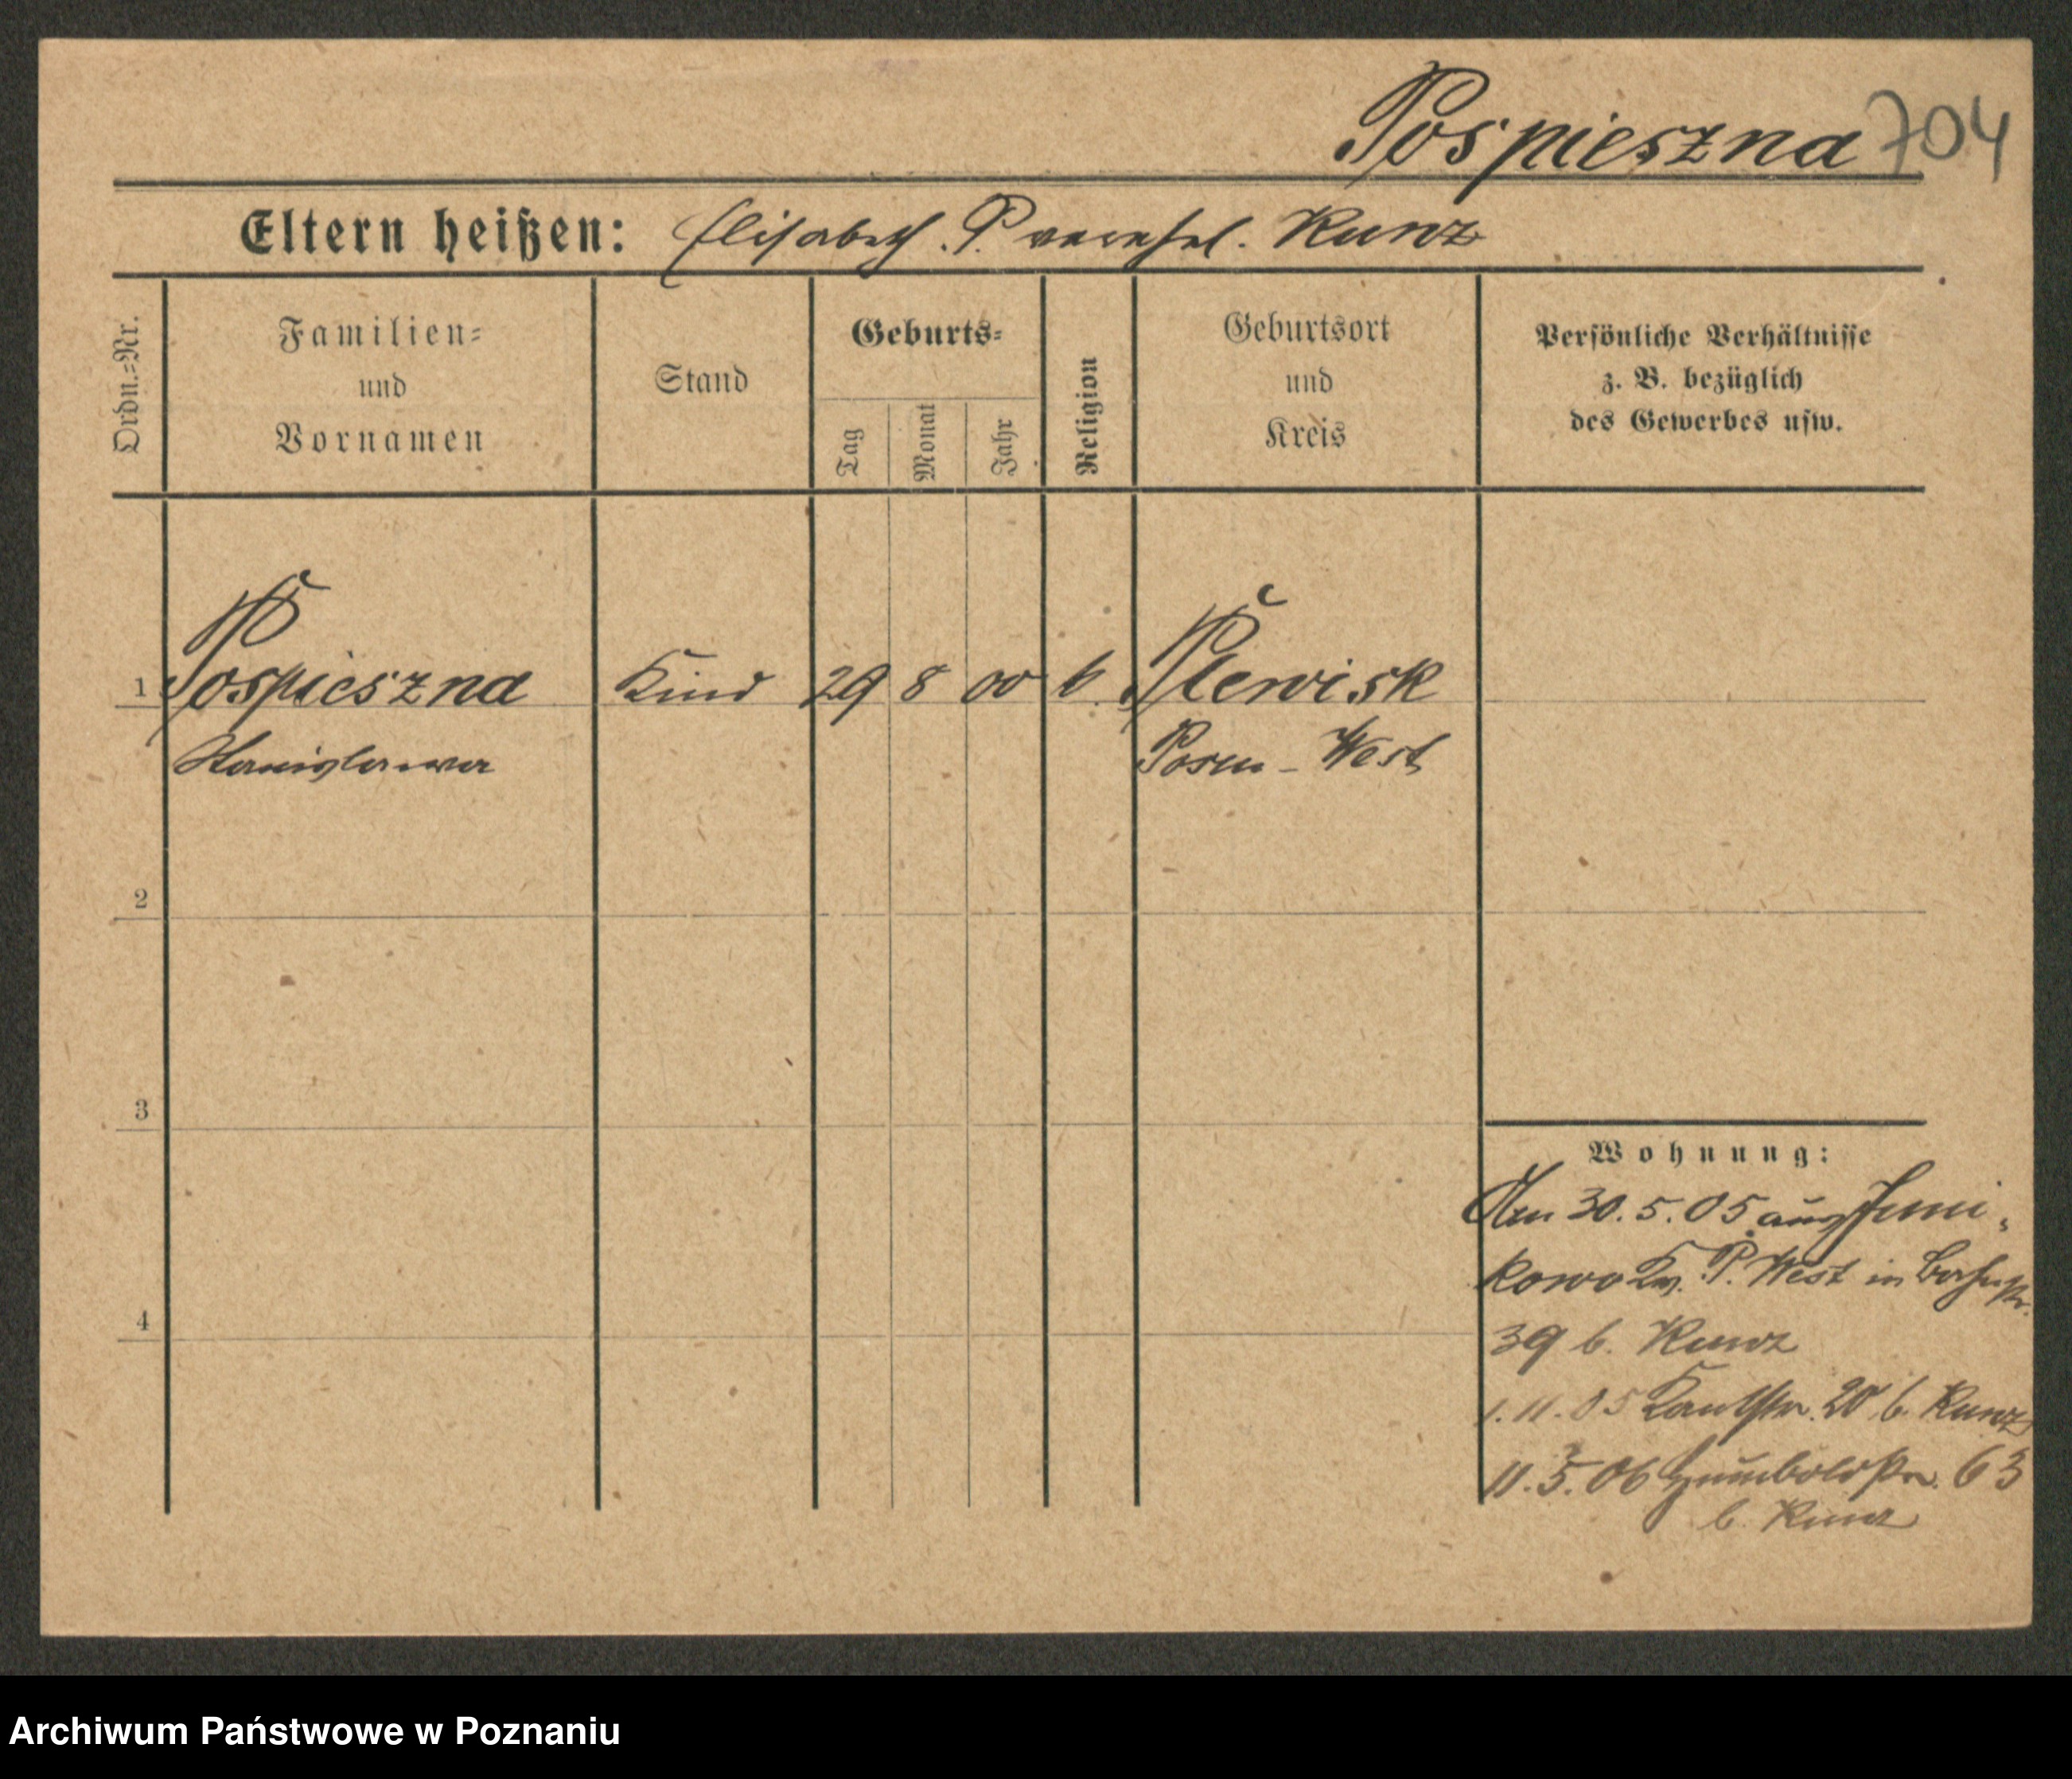 Pospieszna 704
Eltern heißen: Elisabeth P. verehel. Kunz
Ordn.-Nr.
Familien-
und
Vornamen
Stand
Geburts-
Tag
Monat
Jahr
Religion
Geburtsort
und
Kreis
Persönliche Verhältnisse
z. B. bezüglich
des Gewerbes usw.
1 Pospieszna Kind 29 8 00 k. Plewisk
Stanislawa Posen-West
2
3
4
Wohnung:
Am 30.5.05 aus Juni-
kowo Kr. P. West in
39 b. Kunz
1.11.05 Kantstr. 20 b. Kunz
11.5.06 Humboldstr. 63
b. Kunz
Archiwum Państwowe w Poznaniu